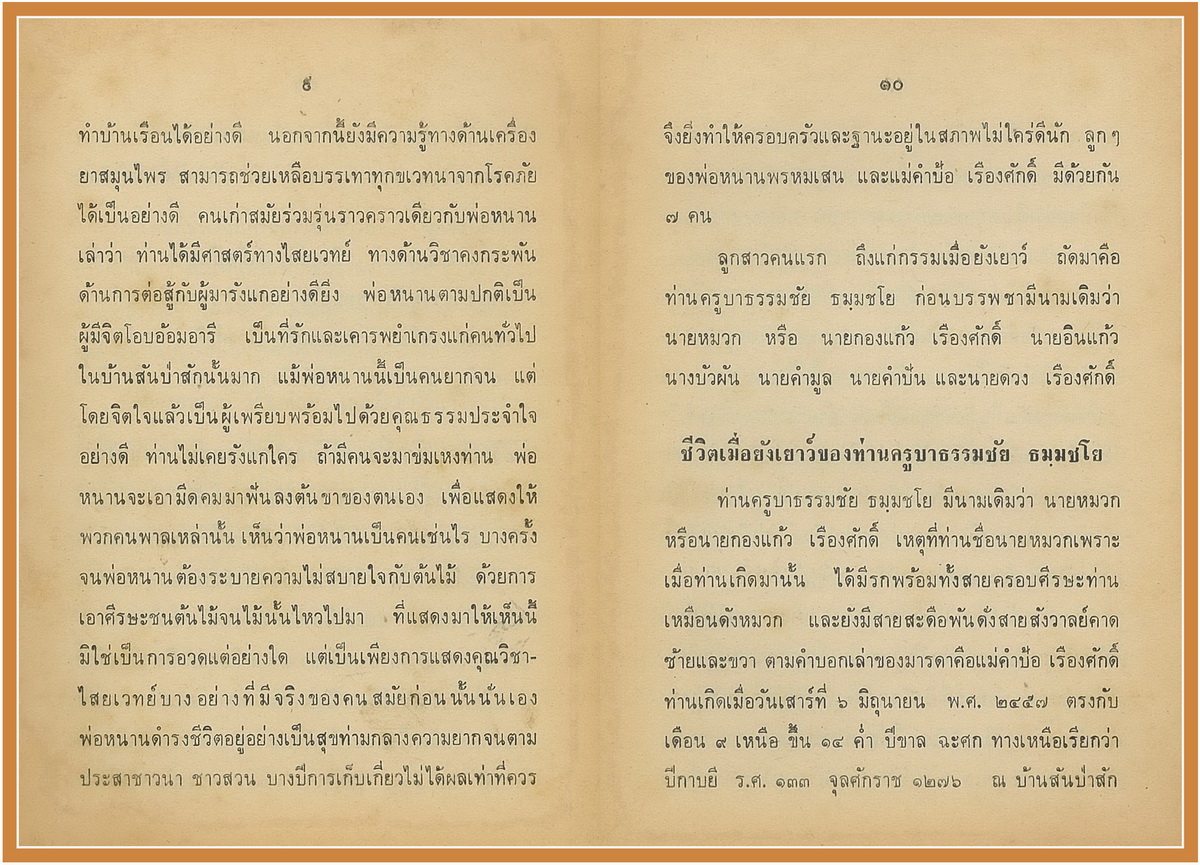 ๕
ทำบ้านเรือนได้อย่างดี นอกจากนี้ยังมีความรู้ทางด้านเครื่อง
ยาสมุนไพร สามารถช่วยเหลือบรรเทาทุกขเวทนาจากโรคภัย
ได้เป็นอย่างดี คนเก่าสมัยร่วมรุ่นราวคราวเดียวกับพ่อหนาน
เล่าว่า ท่านได้มีศาสตร์ทางไสยเวทย์ ทางด้านวิชาคงกระพัน
ด้านการต่อสู้กับผู้มารังแกอย่างดียิ่ง พ่อหนานตามปกติเป็น
ผู้มีจิตโอบอ้อมอารี เป็นที่รักและเคารพยำเกรงแก่คนทั่วไป
ในบ้านสันป่าสักนั้นมาก แม้พ่อหนานนี้เป็นคนยากจน แต่
โดยจิตใจแล้วเป็นผู้เพรียบพร้อมไปด้วยคุณธรรมประจำใจ
อย่างดี ท่านไม่เคยรังแกใคร ถ้ามีคนจะมาข่มเหงท่าน พ่อ
หนานจะเอามีดคมมาฟันลงต้นขาของตนเอง เพื่อแสดงให้
พวกคนพาลเหล่านั้น เห็นว่าพ่อหนานเป็นคนเช่นไร บางครั้ง
จนพ่อหนานต้องระบายความไม่สบายใจกับต้นไม้ ด้วยการ
เอาศีรษะชนต้นไม้จนไม้นั้นไหวไปมา ที่แสดงมาให้เห็นนี้
มิใช่เป็นการอวดแต่อย่างใด แต่เป็นเพียงการแสดงคุณวิชา-
ไสยเวทย์บางอย่างที่มีจริงของคนสมัยก่อนนั้นนั่นเอง
พ่อหนานดำรงชีวิตอยู่อย่างเป็นสุขท่ามกลางความยากจนตาม
ประสาชาวนา ชาวสวน บางปีการเก็บเกี่ยวไม่ได้ผลเท่าที่ควร
๑๐
จึงยิ่งทำให้ครอบครัวและฐานะอยู่ในสภาพไม่ใคร่ดีนัก ลูกๆ
ของพ่อหนานพรหมเสน และแม่คำป้อ เรืองศักดิ์ มีด้วยกัน
๗ คน
ลูกสาวคนแรก ถึงแก่กรรมเมื่อยังเยาว์ ถัดมาคือ
ท่านครูบาธรรมชัย ธมฺมชโย ก่อนบรรพชามีนามเดิมว่า
นายหมวก หรือ นายกองแก้ว เรืองศักดิ์ นายอินแก้ว
นางบัวผัน นายคำมูล นายคำปัน และนายดวง เรืองศักดิ์
ชีวิตเมื่อยังเยาว์ของท่านครูบาธรรมชัย ธมฺมชโย
ท่านครูบาธรรมชัย ธมฺมชโย มีนามเดิมว่า นายหมวก
หรือนายกองแก้ว เรืองศักดิ์ เหตุที่ท่านชื่อนายหมวกเพราะ
เมื่อท่านเกิดมานั้น ได้มีรกพร้อมทั้งสายครอบศีรษะท่าน
เหมือนดังหมวก และยังมีสายสะดือพันดั่งสายสังวาลย์คาด
ซ้ายและขวา ตามคำบอกเล่าของมารดาคือแม่คำป้อ เรืองศักดิ์
ท่านเกิดเมื่อวันเสาร์ที่ ๖ มิถุนายน พ.ศ. ๒๔๕๗ ตรงกับ
เดือน ๙ เหนือ ขึ้น ๑๔ ค่ำ ปีขาล ฉะศก ทางเหนือเรียกว่า
ปีกาบยี ร.ศ. ๑๓๓ จุลศักราช ๑๒๗๖ ณ บ้านสันป่าสัก